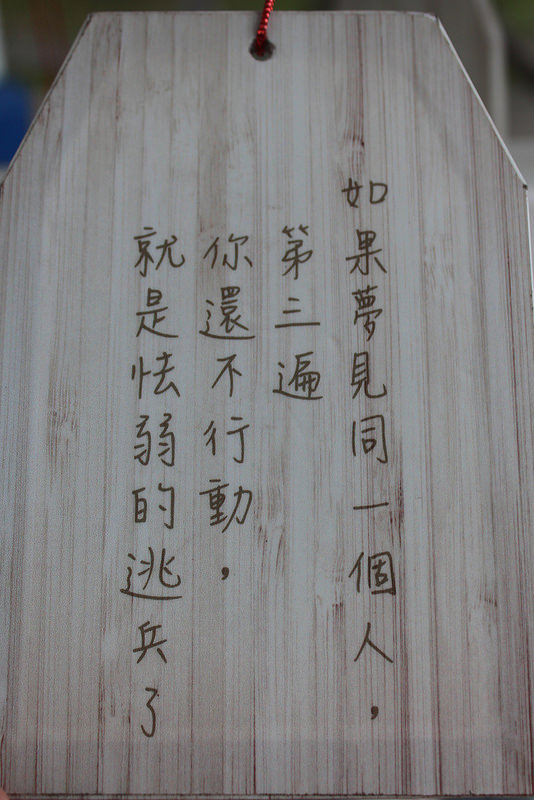 如果夢見同一個人，
第三遍
你還不行動，
就是怯弱的逃兵了